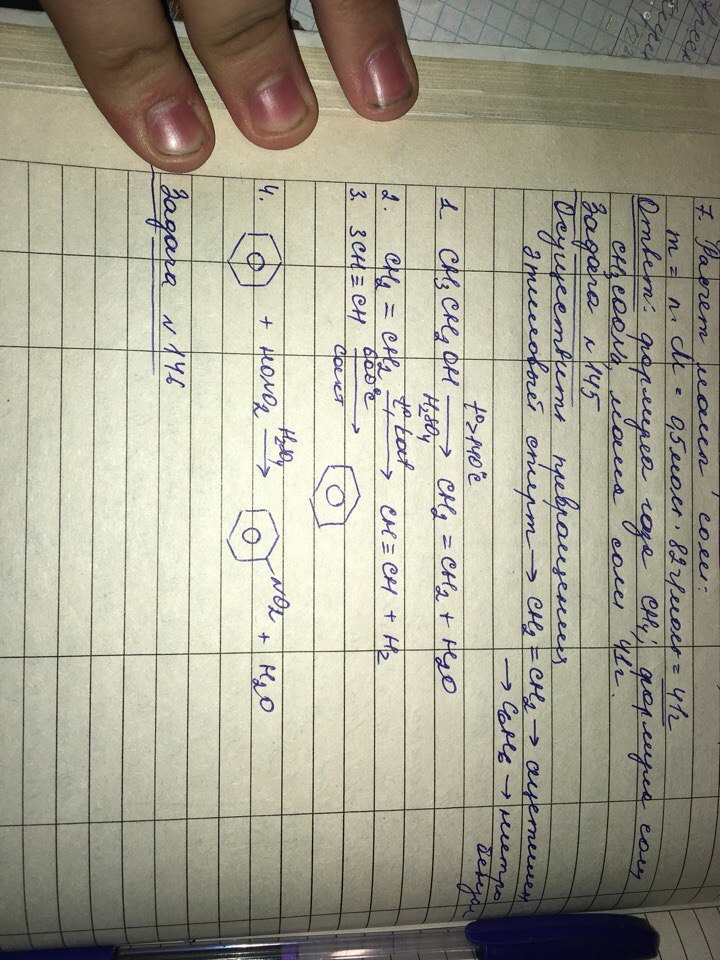 7. Расчет массы соли:
m = n · M = 0,5моль · 82 г/моль = 41г
Ответ: формула газа CH4; формула соли
CH3COONa, масса соли 41г.
Задача №145
Осуществить превращения
этиловый спирт → CH2 = CH2 → ацетилен
→ C6H6 → нитро
бензол
1. CH3CH2OH t°>140°C H2SO4 → CH2 = CH2 + H2O
2. CH2 = CH2 t°, kat → CH≡CH + H2
3. 3CH≡CH 600°C Cакт →
4. + HONO2 H2SO4 → NO2 + H2O
Задача №146